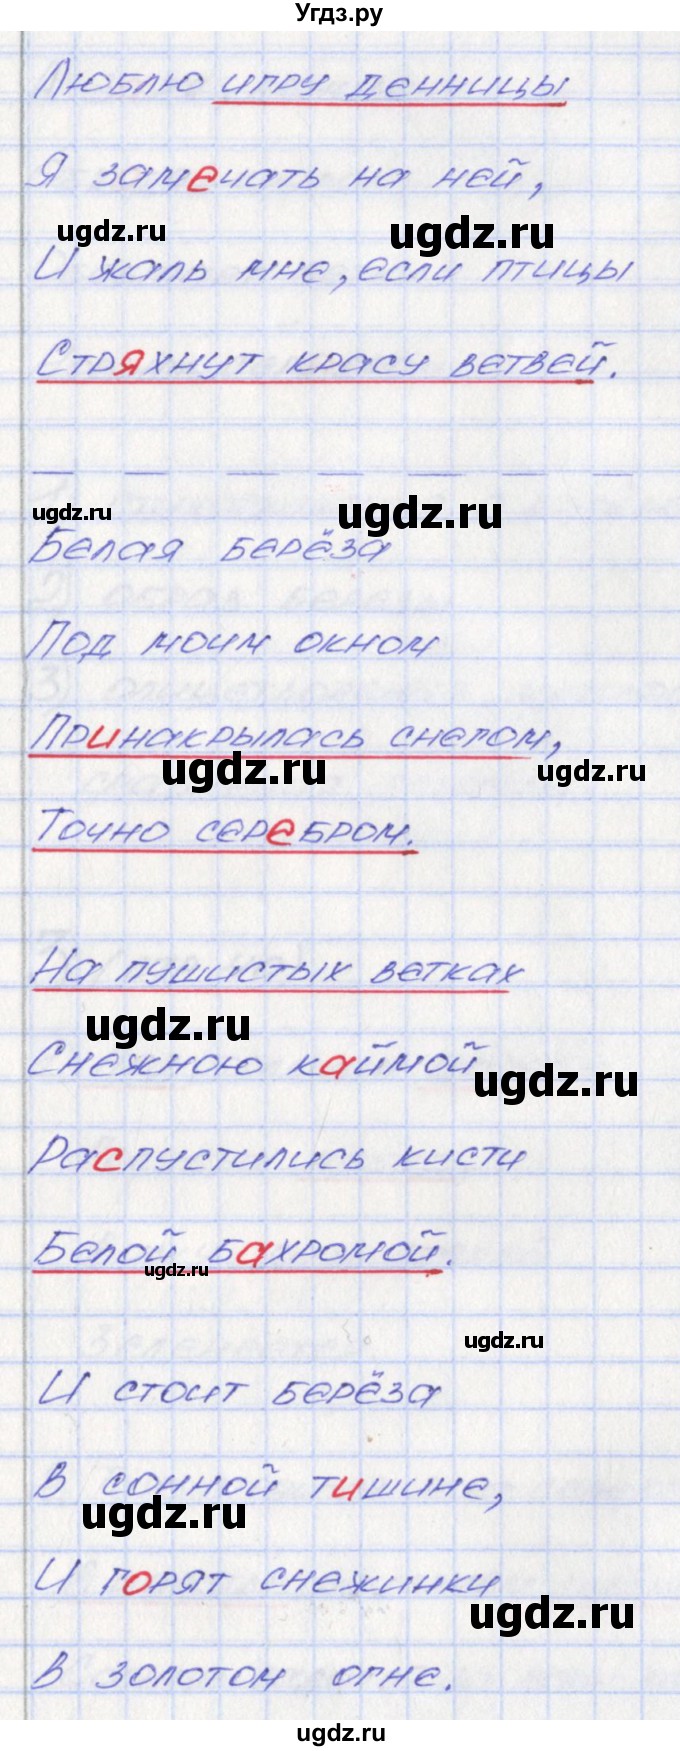 Угдз.ру
Люблю игру денницы
Я замечать на ней,
ugdz.ru ugdz.ru
И жаль мне, если птицы
Стряхнут красу ветвей.
ugdz.ru ugdz.ru
Белая берёза
Под моим окном
Принакрылась снегом,
ugdz.ru ugdz.ru
Точно серебром.
На пушистых ветках
ugdz.ru
Снежною каймой
ugdz.ru
Распустились кисти
Белой бахромой.
ugdz.ru
ugdz.ru
И стоит берёза
В сонной тишине,
ugdz.ru
И горят снежинки
ugdz.ru
В золотом огне.
ugdz.ru